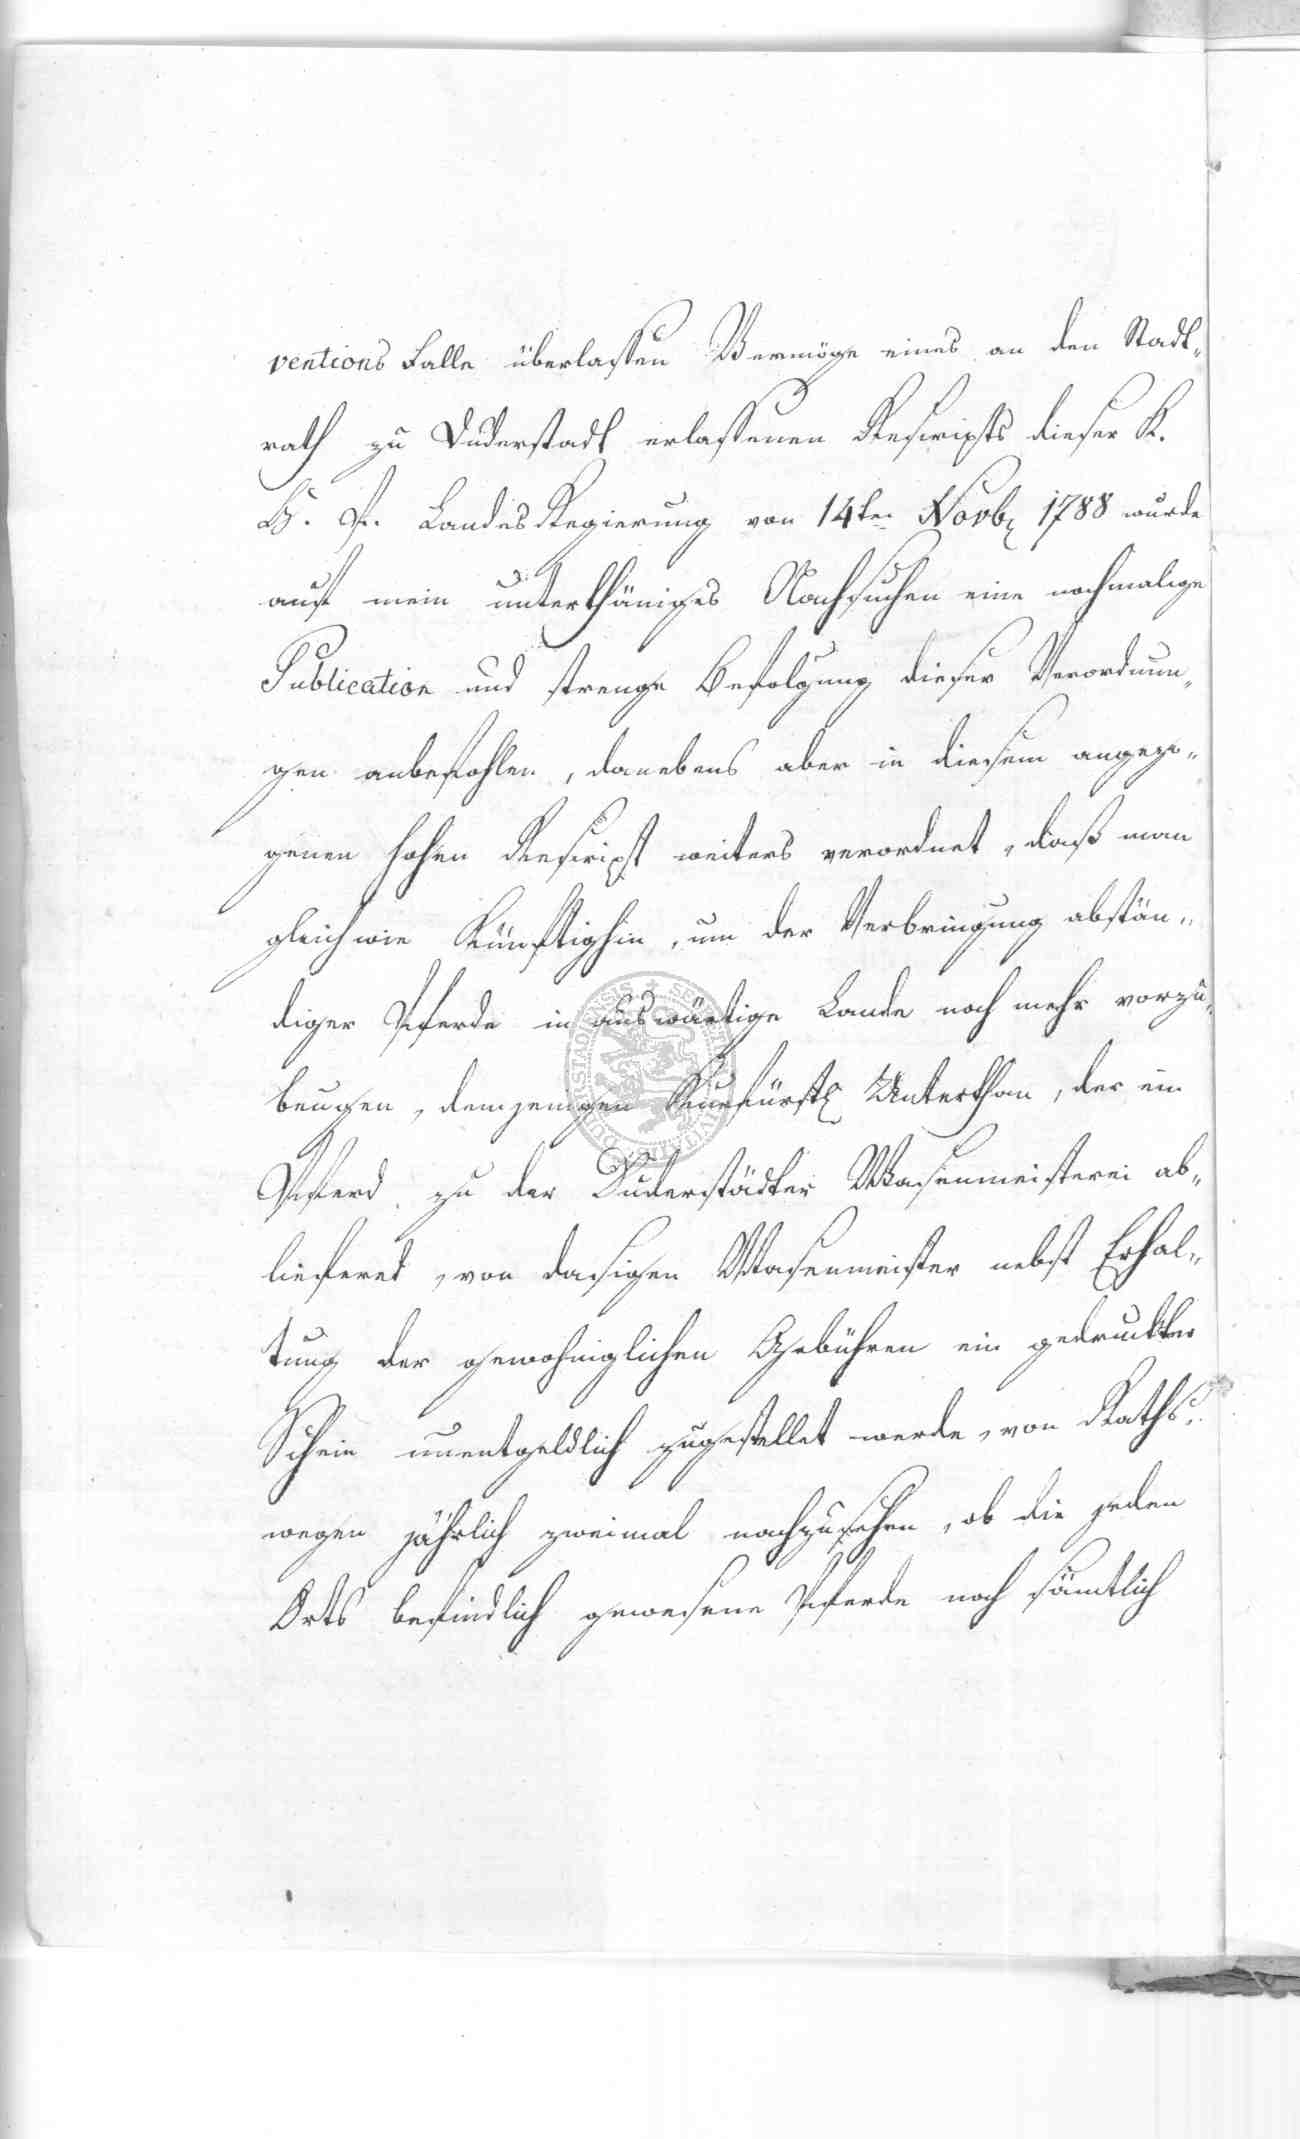 ventions Falle überlassen Vermöge eines an den Stadt„
rath zu Duderstadt erlassenen Rescripts dieser K.
H. P. Landes Regierung von 14ten Novb 1788 wurde
auf mein unterthäniges Nachsuchen eine nochmalige
Publication und strenge Befolgung dieser Verordnun„
gen anbefohlen, danebens aber in diesem angezo„
genen hohen Rescript weiters verordnet, daß man
gleichwie Künftighin, um der Verbringung abstän„
diger Pferde in auswärtige Lande noch mehr vorzu„
beugen, demjenigen Kurfürstl Unterthan, der ein
Pferd zu der Duderstädter Wasenmeisterei ab„
lieferet, von dasigen Wasenmeister nebst Erhal„
tung der gewohniglichen Gebühren ein gedruckter
Schein unentgeldlich zugestellet werde, von Raths„
wegen jährlich zweimal nachzusehen, ob die jeden
Orts befindlich gewesene Pferde noch sämtlich